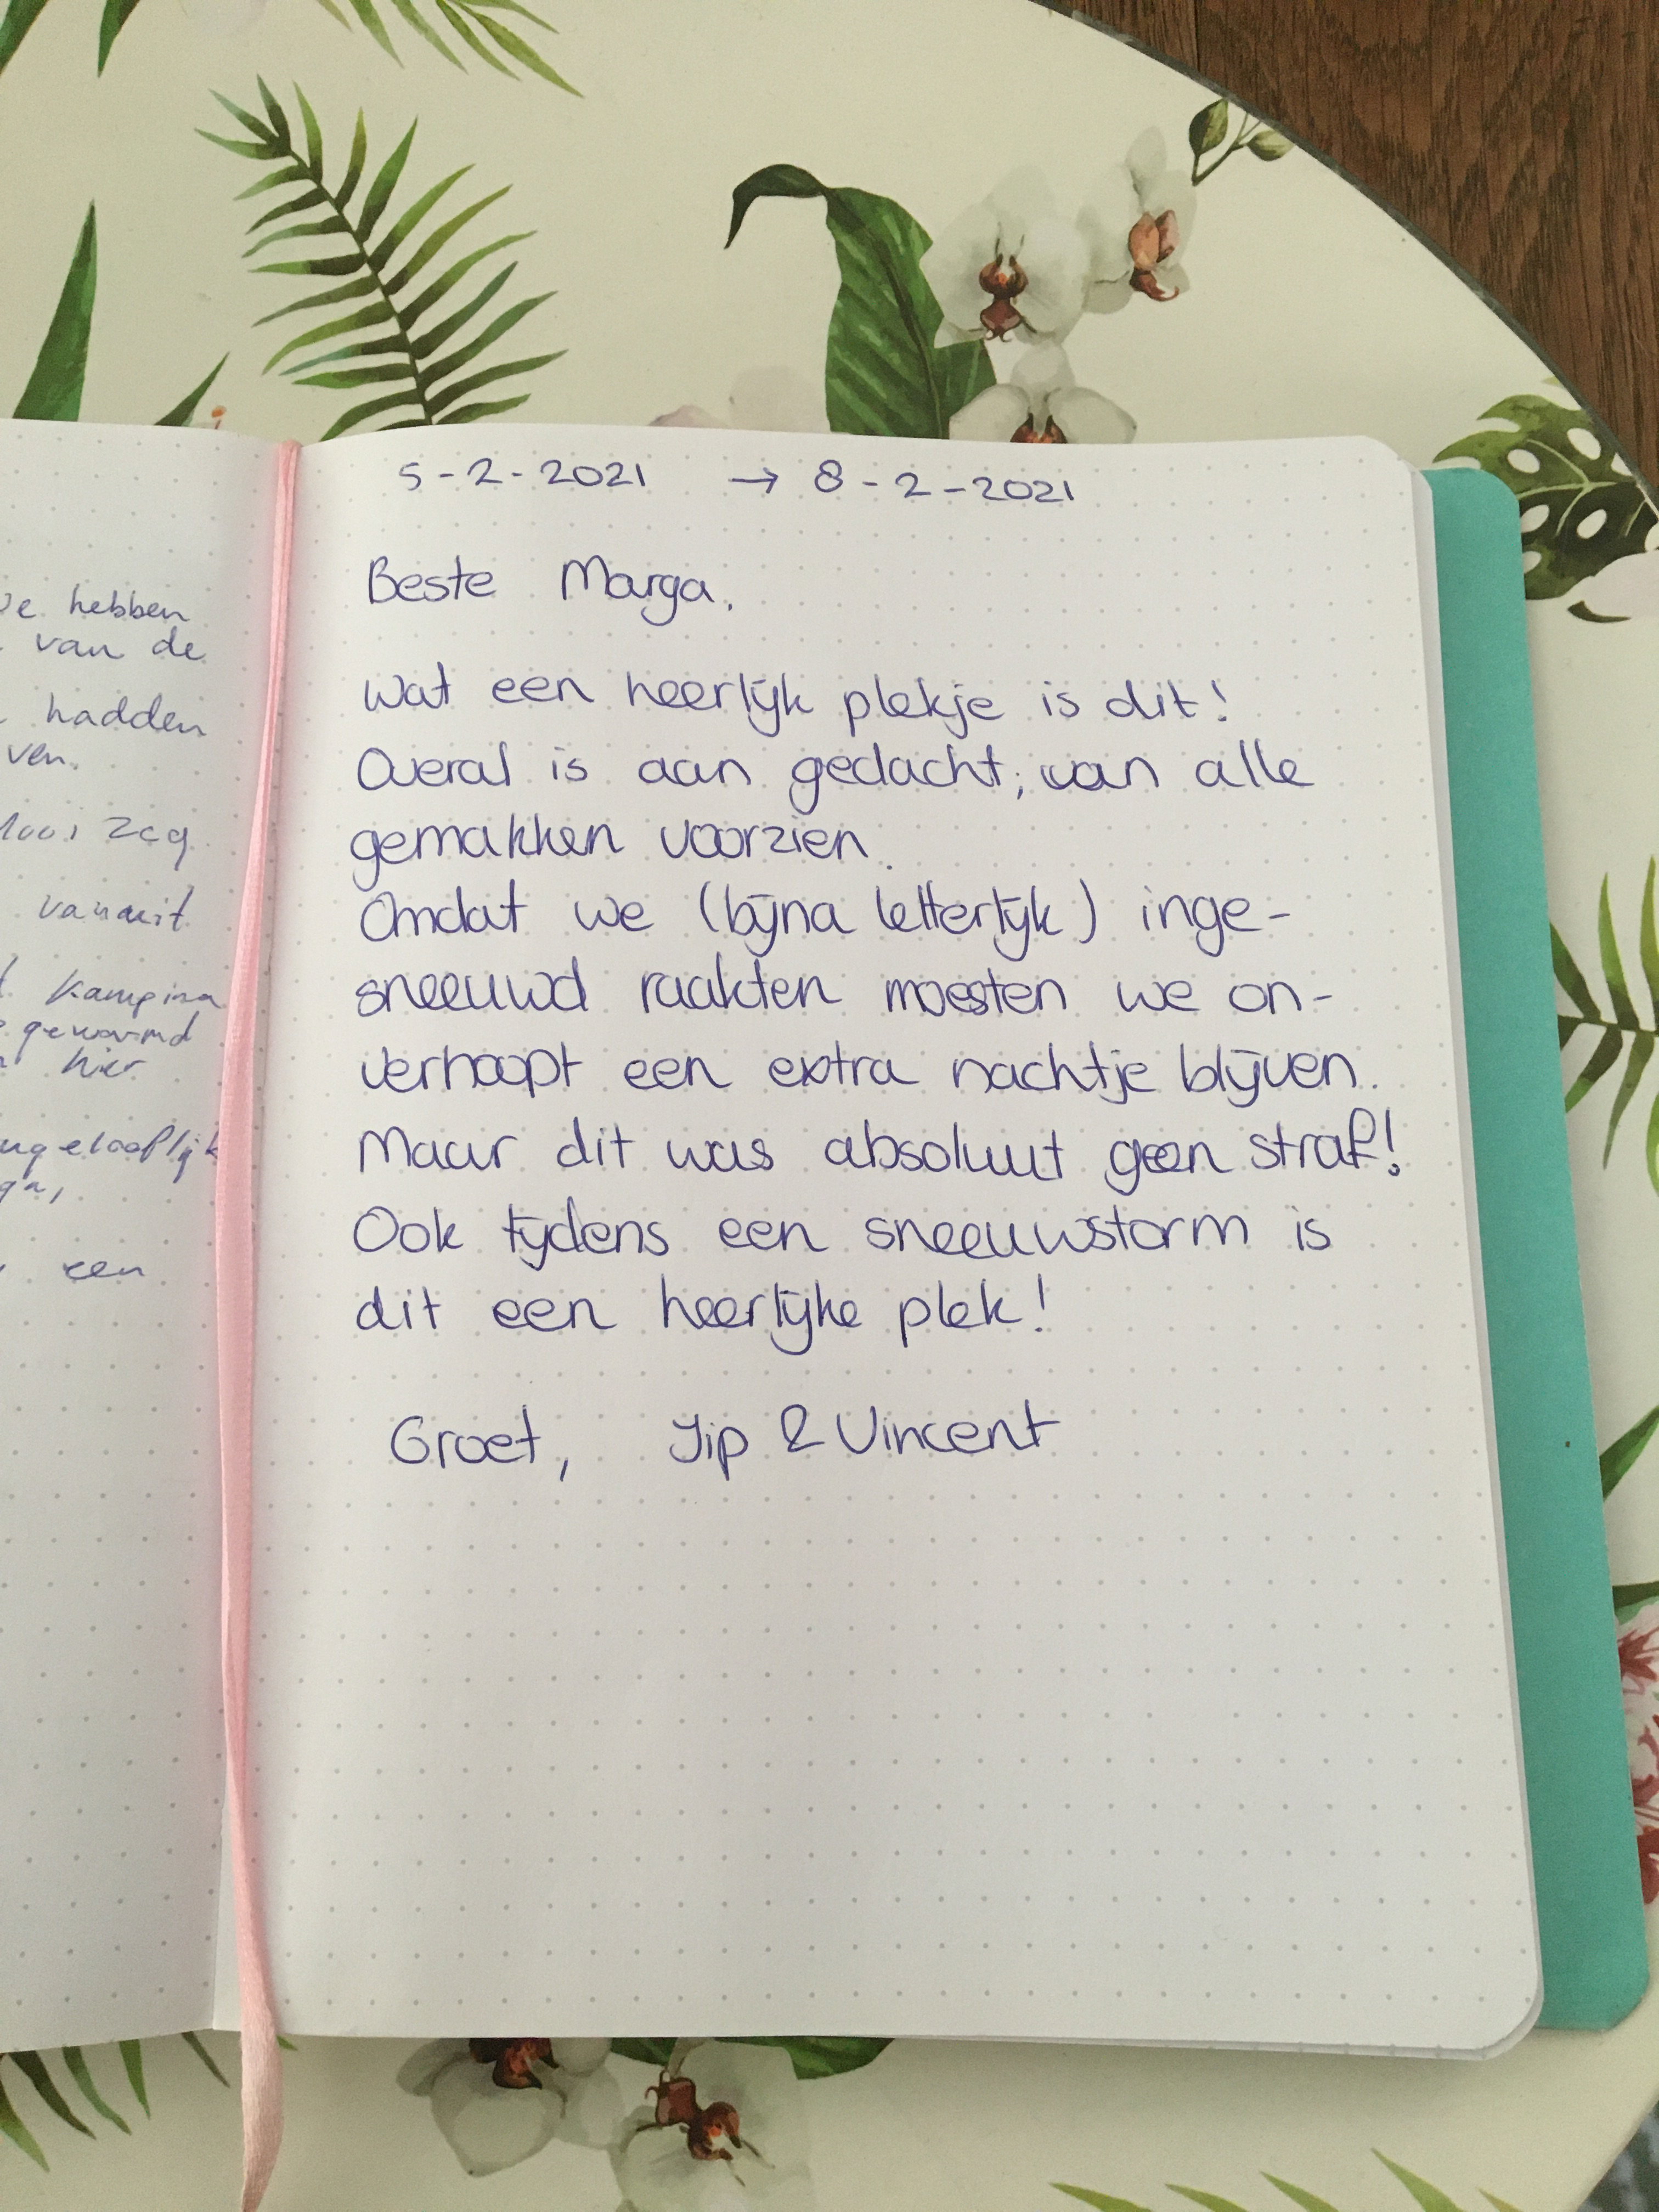 hebben
van de
hadden
ven.
zeg
vanuit
Kampina
gewarmd
hier
ga,
een
5-2-2021 → 8-2-2021
Beste Marga,
wat een heerlijk plekje is dit!
Overal is aan gedacht; van alle
gemakken voorzien.
Omdat we (bijna letterlijk) inge-
sneeuwd raakten moesten we on-
verhoopt een extra nachtje blijven.
Maar dit was absoluut geen straf!
Ook tijdens een sneeuwstorm is
dit een heerlijke plek!
Groet, Jip & Vincent